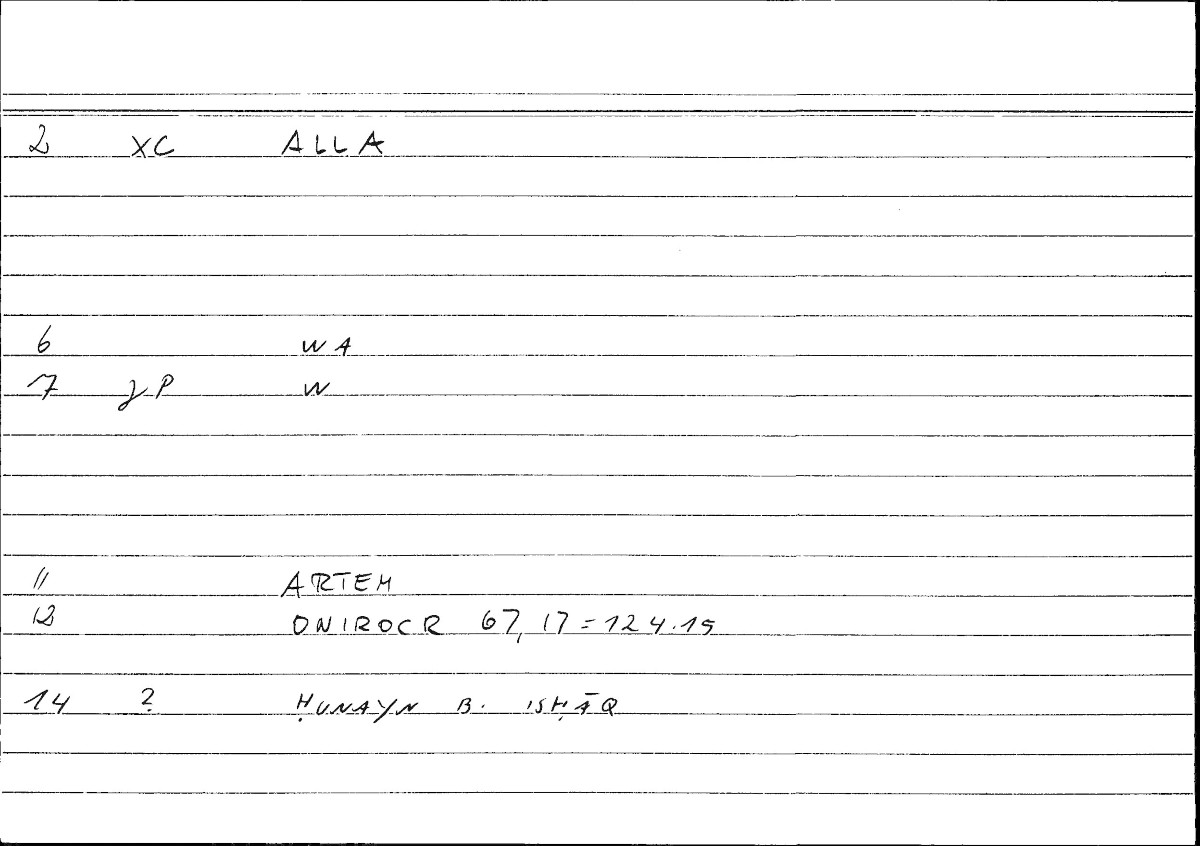 2 XC ALLA
6 WA
7 γP W
11 ARTEM
12 ONIROCR 67,17=124.15
14 ? ḤUNAYN B. ISḤĀQ